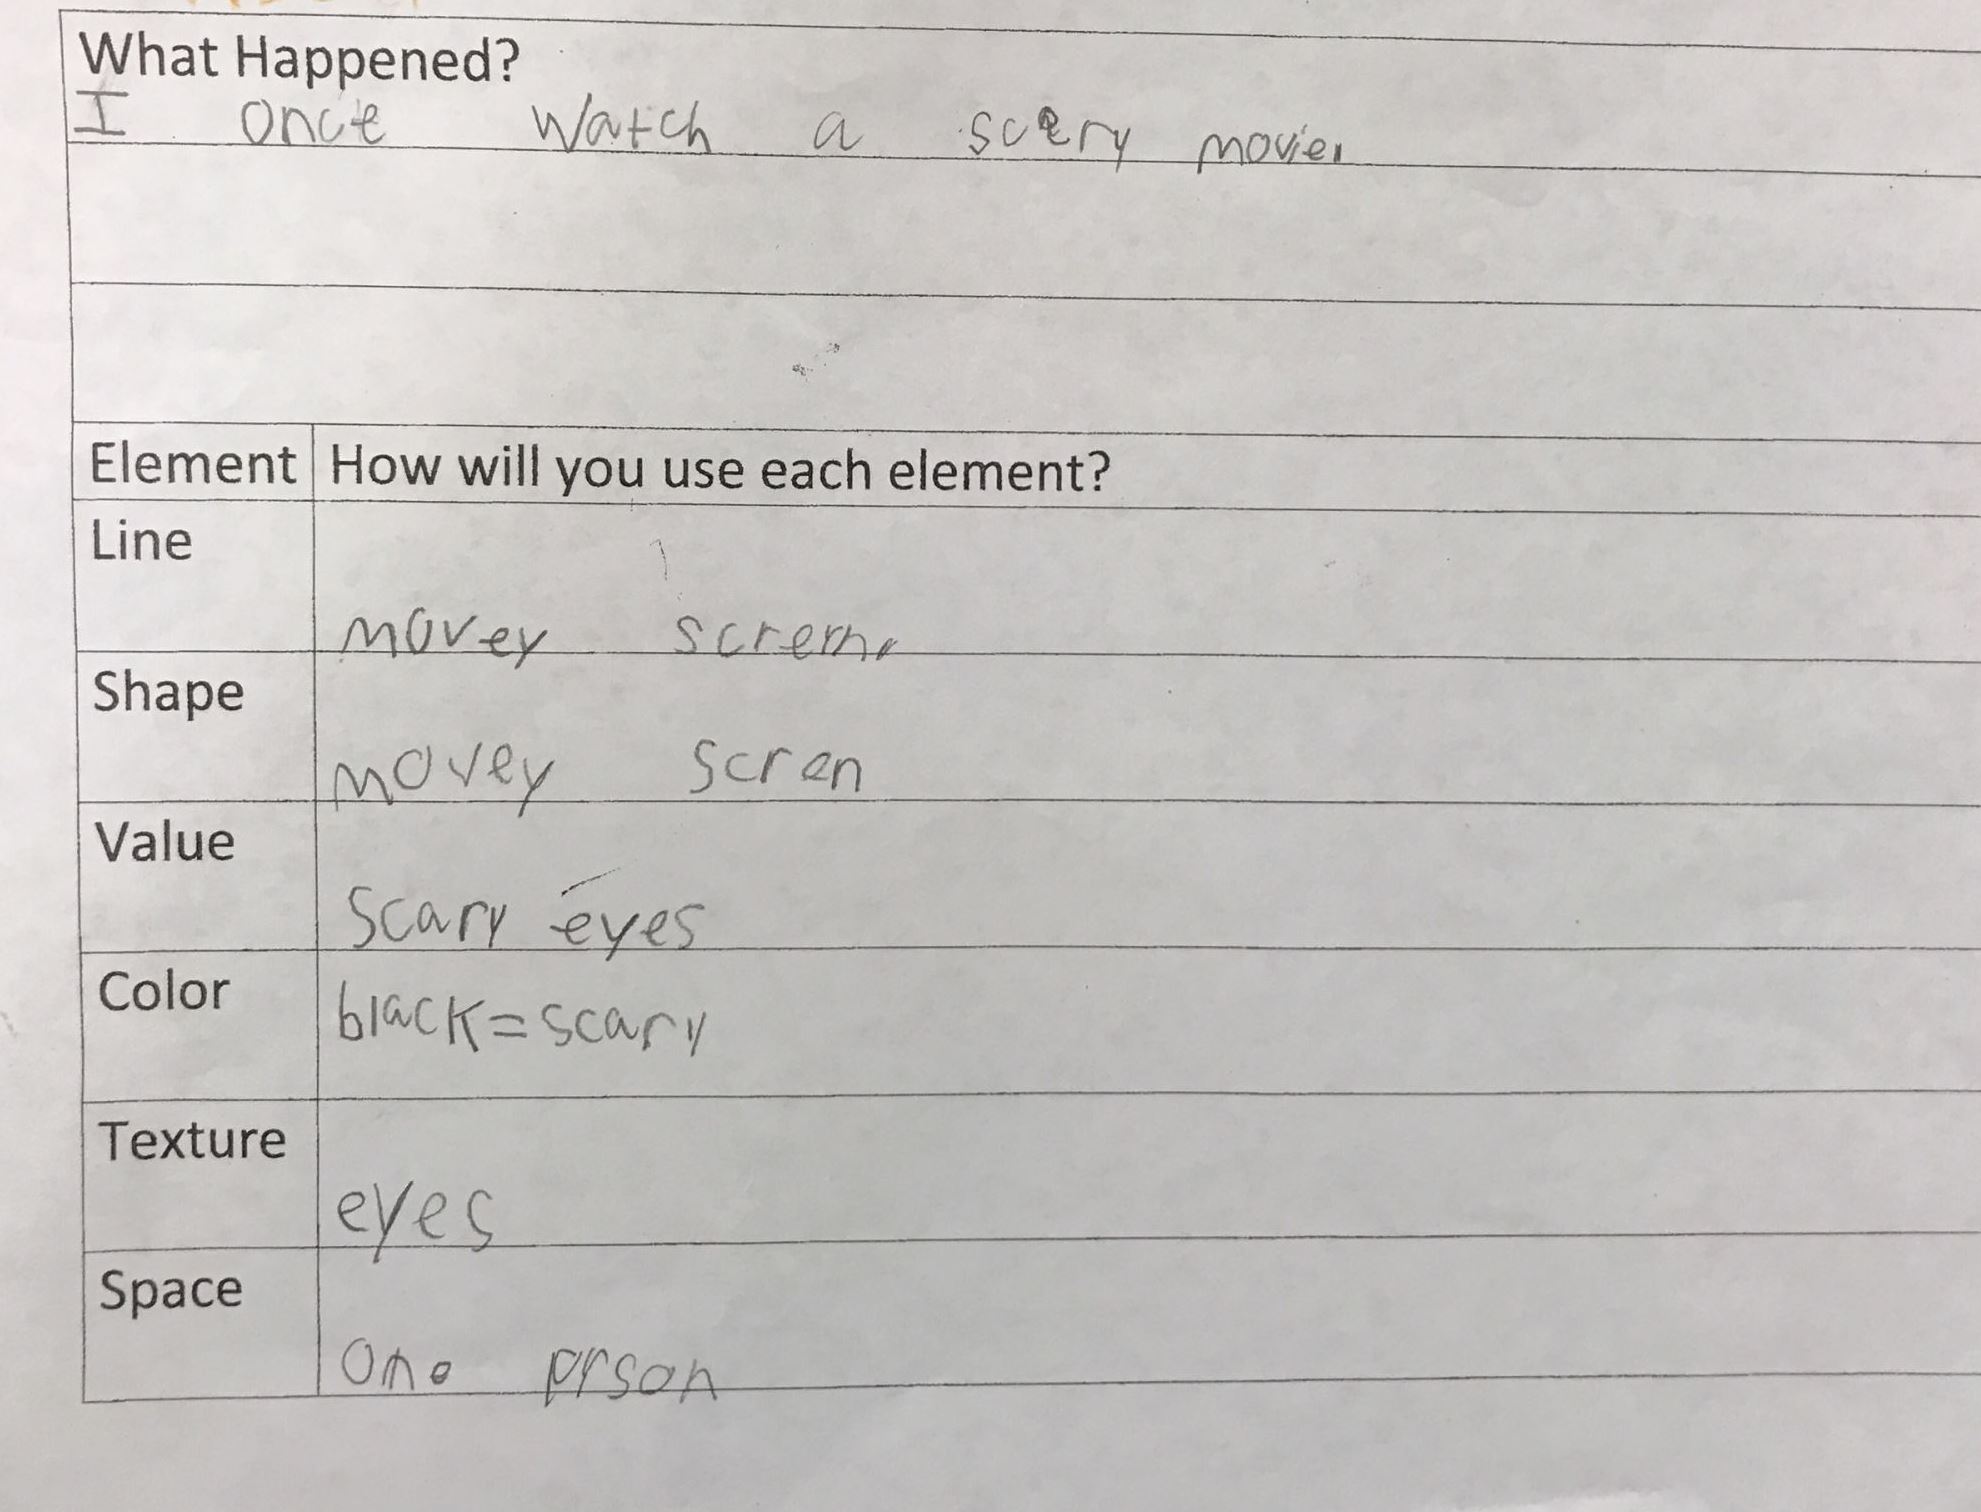 What Happened?
I once watch a scery movie.
Element How will you use each element?
Line
movey screm.
Shape
movey scren
Value
scary eyes
Color
black=scary
Texture
eyes
Space
one prson